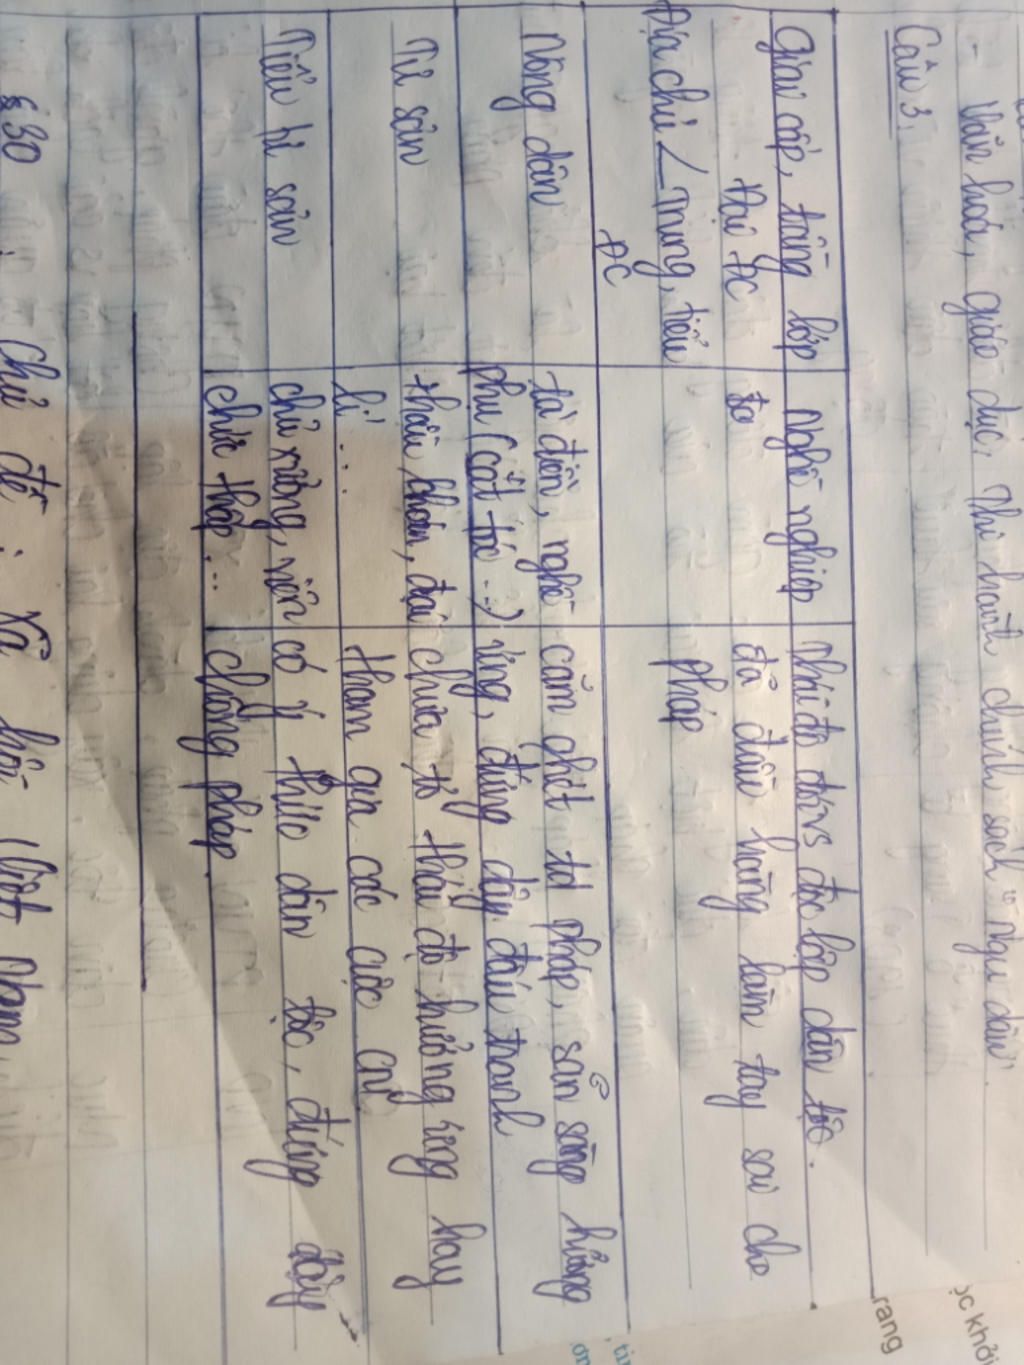 - Văn hoá, giáo dục: Thi hành chính sách "ngu dân".
Câu 3:
Giai cấp, tầng lớp | Nghề nghiệp | Thái độ đối vs độc lập dân tộc.
Đại ĐC
Địa chủ < Trung, tiểu ĐC
đã đầu hàng làm tay sai cho Pháp
Nông dân | tá điền, nghề phụ (cắt tóc ...) | căm ghét td pháp, sẵn sàng hưởng ứng, đứng dậy đấu tranh
Tư sản | thầu khoán, đại lí ... | chưa tỏ thái độ hưởng ứng hay tham gia các cuộc CM
Tiểu tư sản | chủ xưởng, viên chức thấp ... | có ý thức dân tộc, đứng dậy chống pháp
30 : Chủ đề : Xã hội Việt Nam
ọc khởi
rang